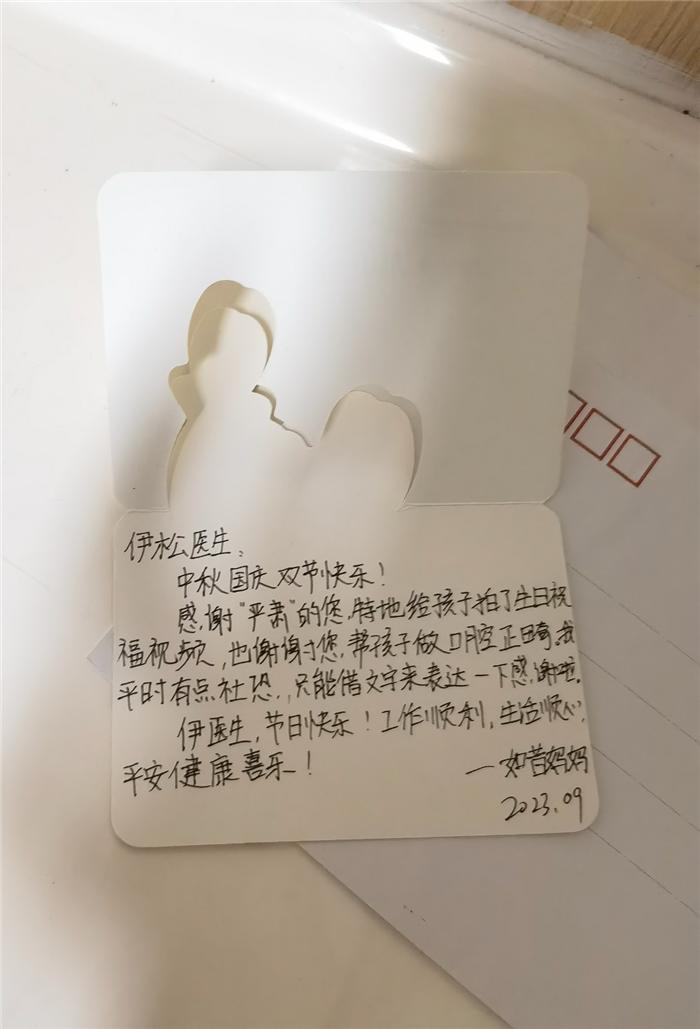 伊松医生、
中秋国庆双节快乐！
感谢“严肃”的您，特地给孩子拍了生日祝
福视频，也谢谢您，帮孩子做口腔正畸。我
平时有点社恐，只能借文字来表达一下感谢啦。
伊医生，节日快乐！工作顺利，生活顺心，
平安健康喜乐！
—如昔妈妈
2023.09